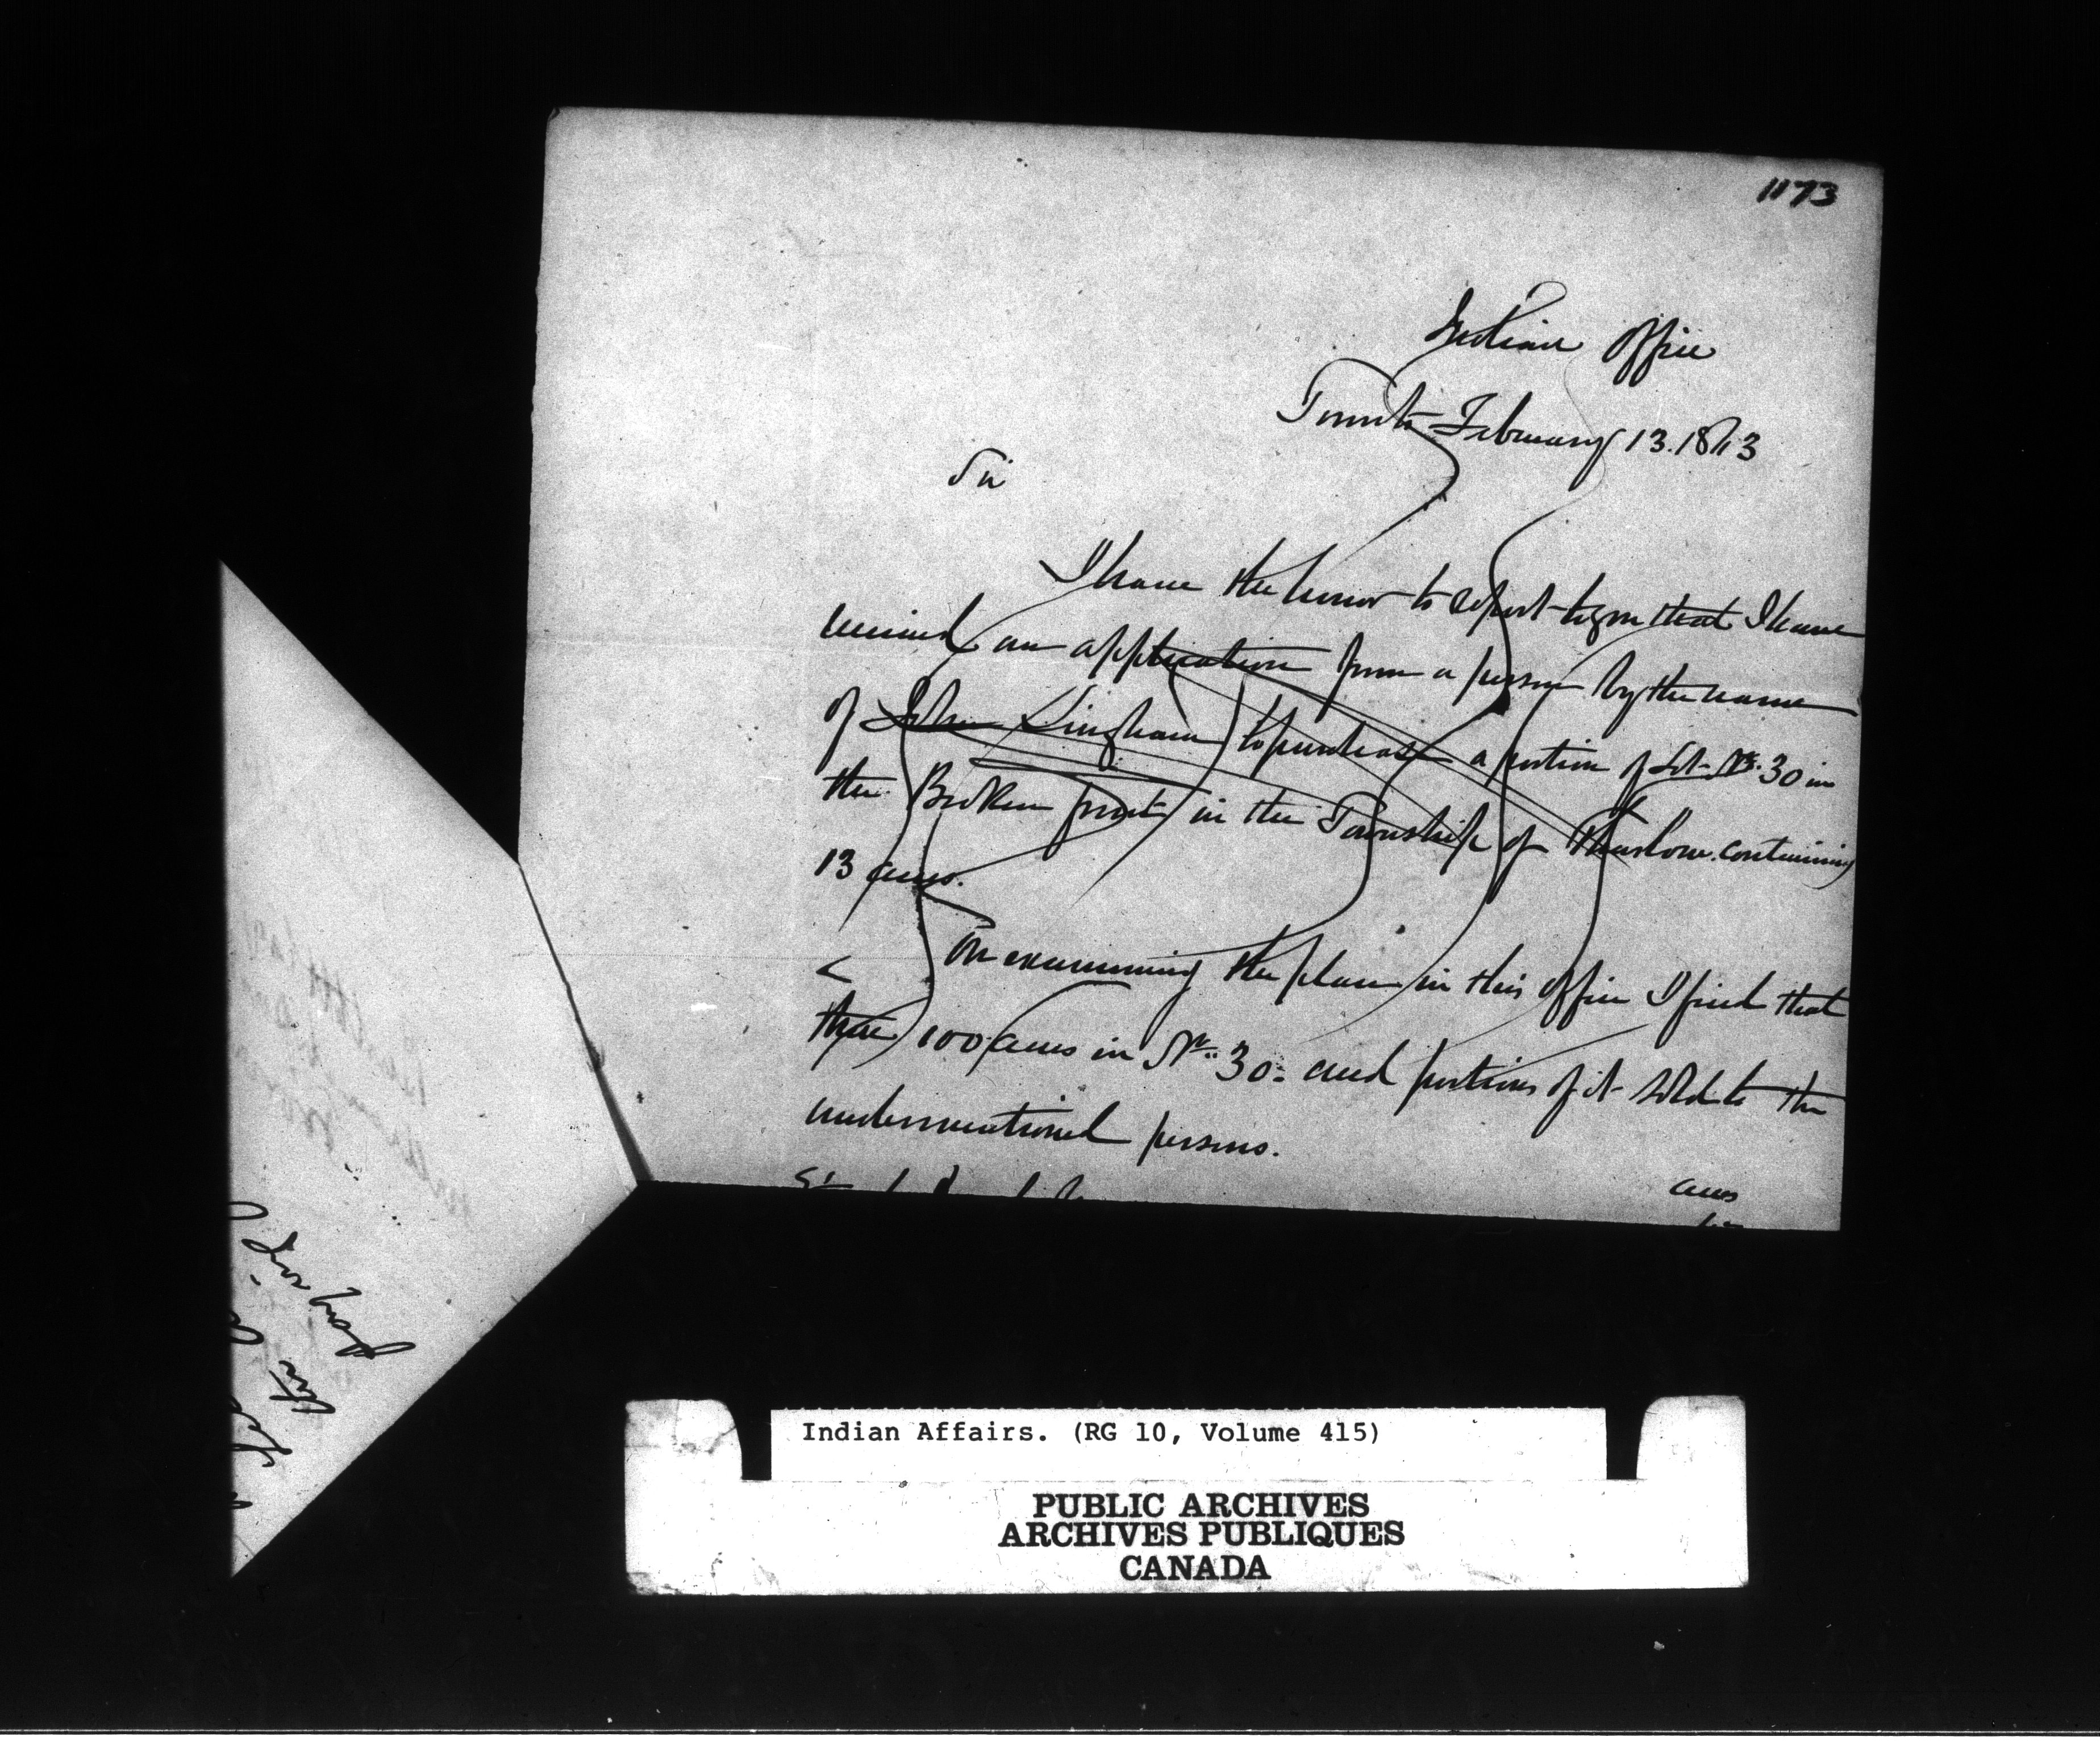 1173
Indian Office
Toronto February 13. 1843
Sir
I have the honor to report to you that I have
received an application from a person by the name
of John Bingham to purchase a portion of Lot No. 30 in
the Broken front in the Township of Thurlow. containing
13 acres.
On examining the plan in this office I find that
there 100 acres in No. 30. and portions of it sold to the
undermentioned persons.
acres
Indian Affairs. (RG 10, Volume 415)
PUBLIC ARCHIVES
ARCHIVES PUBLIQUES
CANADA